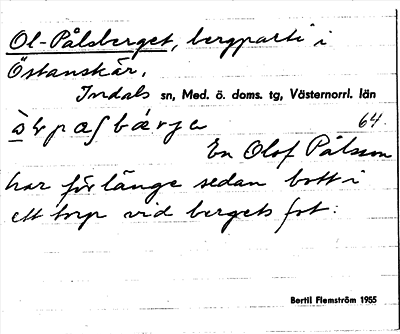 Ol-Pålsberget, bergparti i
Östanskär,
Indals sn, Med. ö. doms. tg, Västernorrl. län
64.
En Olof Pålsson
har för länge sedan bott i
ett torp vid bergets fot.
Bertil Flemström 1955